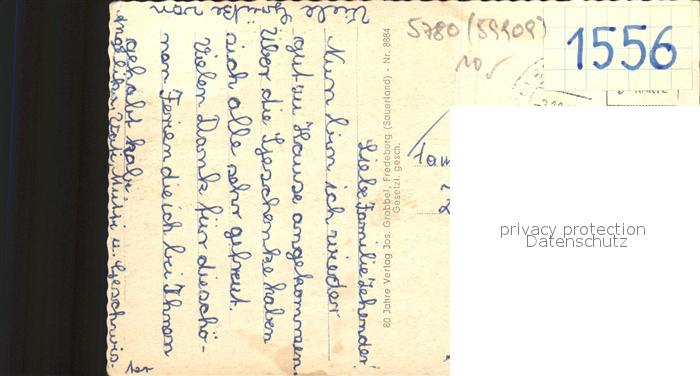 5780 (59909)
10
1556
Liebe Familie Zehender!
Nun bin ich wieder
gut zu Hause angekommen.
Über die Geschenke haben
sich alle sehr gefreut.
Vielen Dank für die schö-
nen Ferien die ich bei Ihnen
gehabt habe.
Viele
Grüße von
Mutti u. Geschwis.
ter
80 Jahre Verlag Jos. Grobbel, Fredeburg (Sauerland) - Nr. 8884
Gesetzl. gesch.
privacy protection
Datenschutz